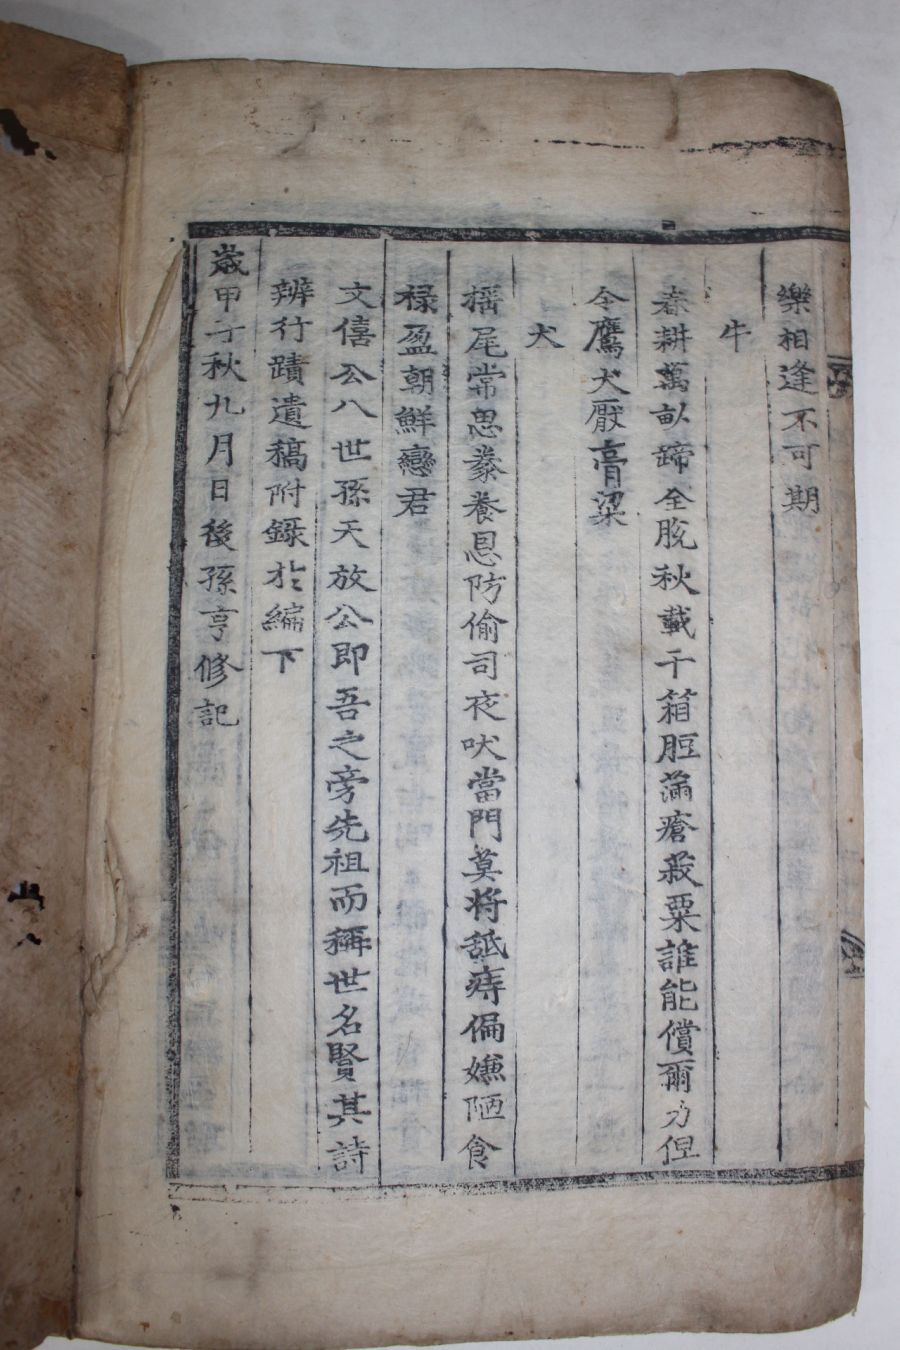 樂相逢不可期
牛
春耕萬畝蹄全脫秋載千箱胆滿瘡菽粟誰能償爾力但
令鷹犬厭膏粱
犬
搖尾常思豢養恩防偷司夜吠當門莫將舐痔偏嫌陋食
祿盈朝鮮戀君
文僖公八世孫天放公即吾之旁先祖而稱世名賢其詩
辨行蹟遺稿附錄於編下
歲甲子秋九月日後孫亨修記